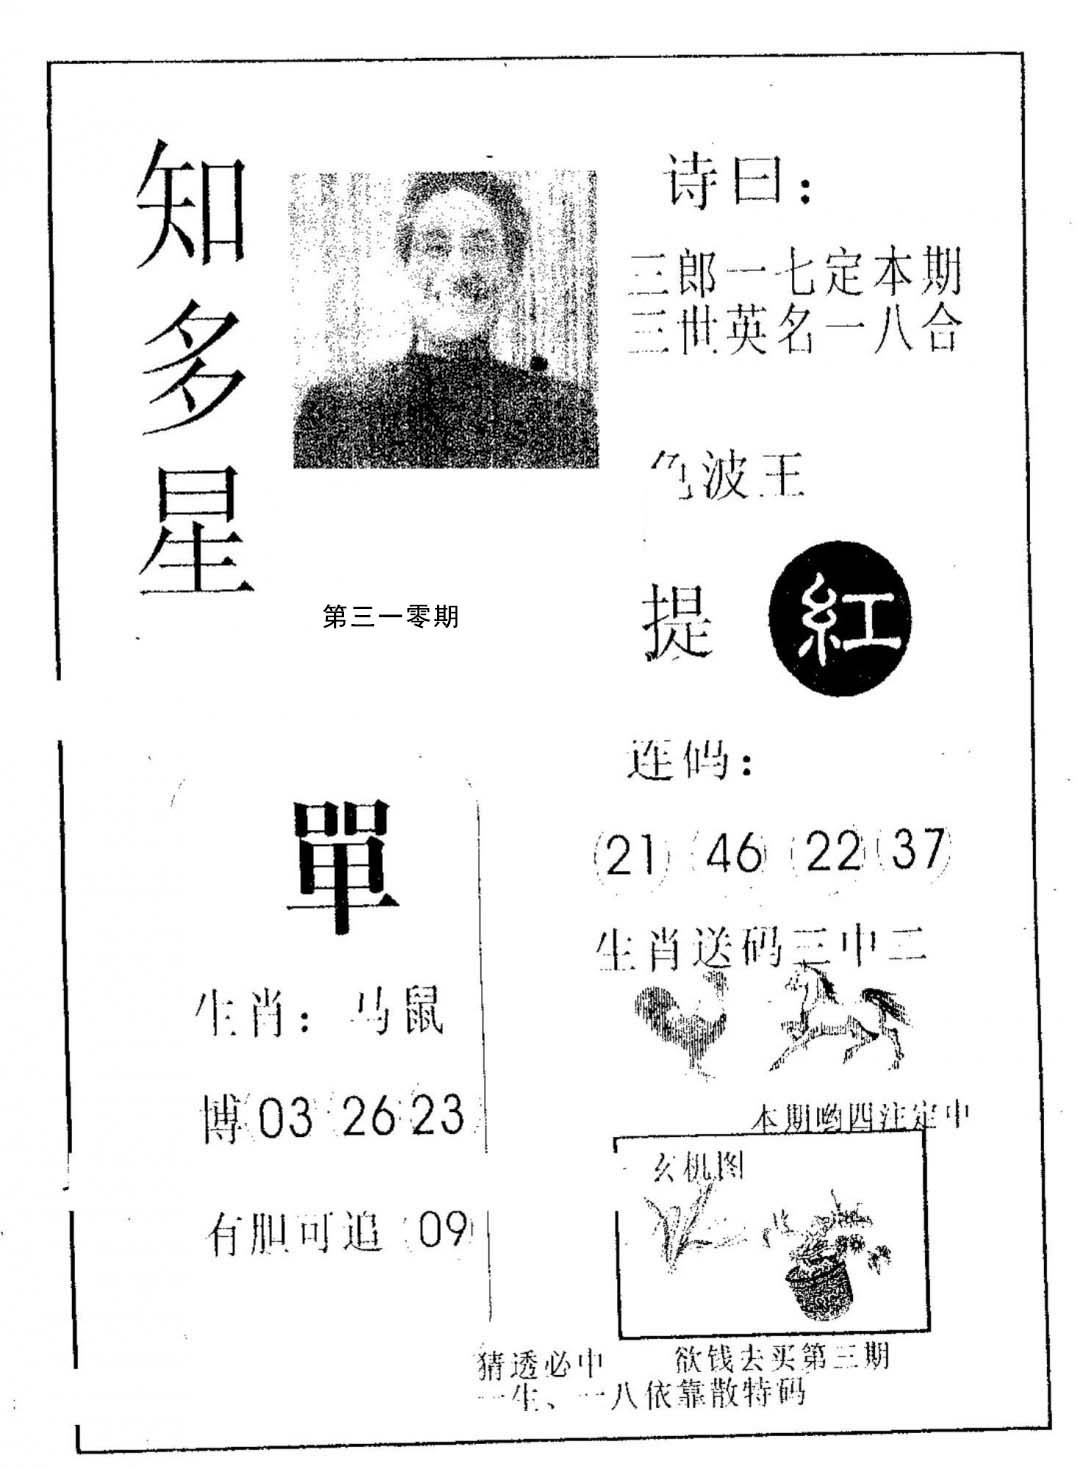 知多星
诗曰：
三郎一七定本期
三世英名一八合
色波王
提 紅
第三一零期
連码：
21 46 22 37
單
生肖送码三中二
生肖：马鼠
博 03 26 23
本期哟四注定中
玄机图
有胆可追 09
猜透必中 欲钱去买第三期
一生、一八依靠散特码